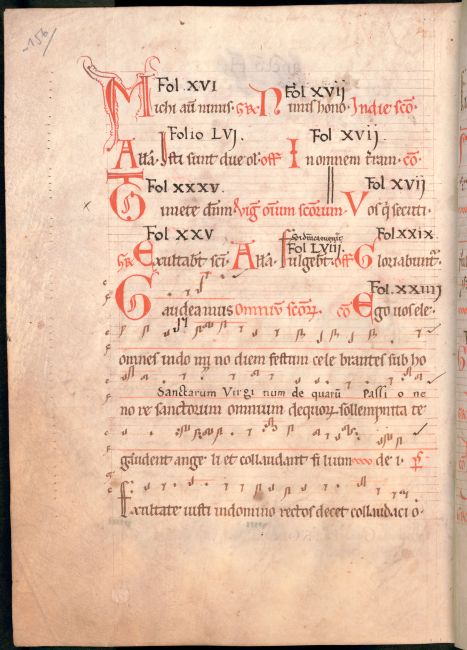 156
Fol . XVI Fol XVII
Michi aut nimis. Gr Nimis hono. In die sco.
Folio LVI. Fol XVII.
Alla. Isti sunt due ol. off In omnem tram. co.
Fol XXXV. Fol XVII
Timete dnm. Vig omium scorum. Vos q secuti.
Fol XXV Fol LVIII. Fol XXIX
Gr Exultabt sci. Alla. Fulgebt. off Gloriabunt.
Fol. XXIIII
Gaudeamus Omniu scor. co Ego vos ele.
omnes in do mi no diem festum cele brantes sub ho
Sanctarum Virgi num de quaru Passi o ne
no re sanctorum omnium de quor sollempnita te
gaudent ange li et collaudant fi lium de i. ps
Exultate iusti in domino rectos decet collaudaci o.